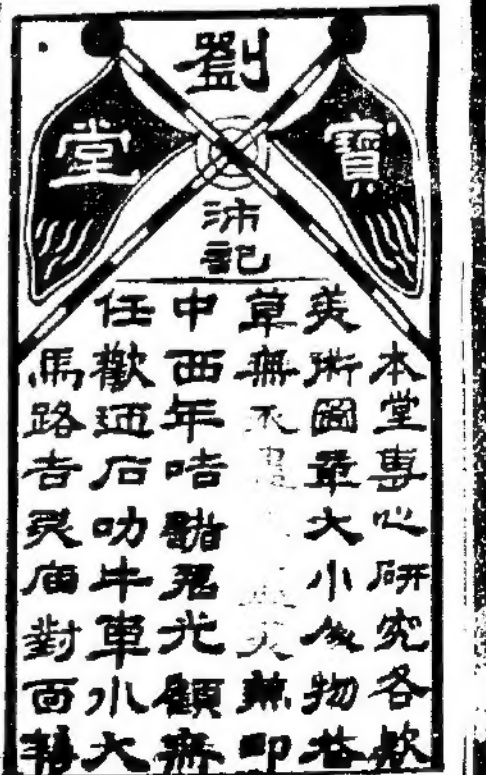 劉
寶堂
沛記
本堂專心研究各款
美術圖章大小物花
草無不美兼印
中西年咭諸君光顧無
任歡迎石叻牛車水大
馬路吉灵庙對面